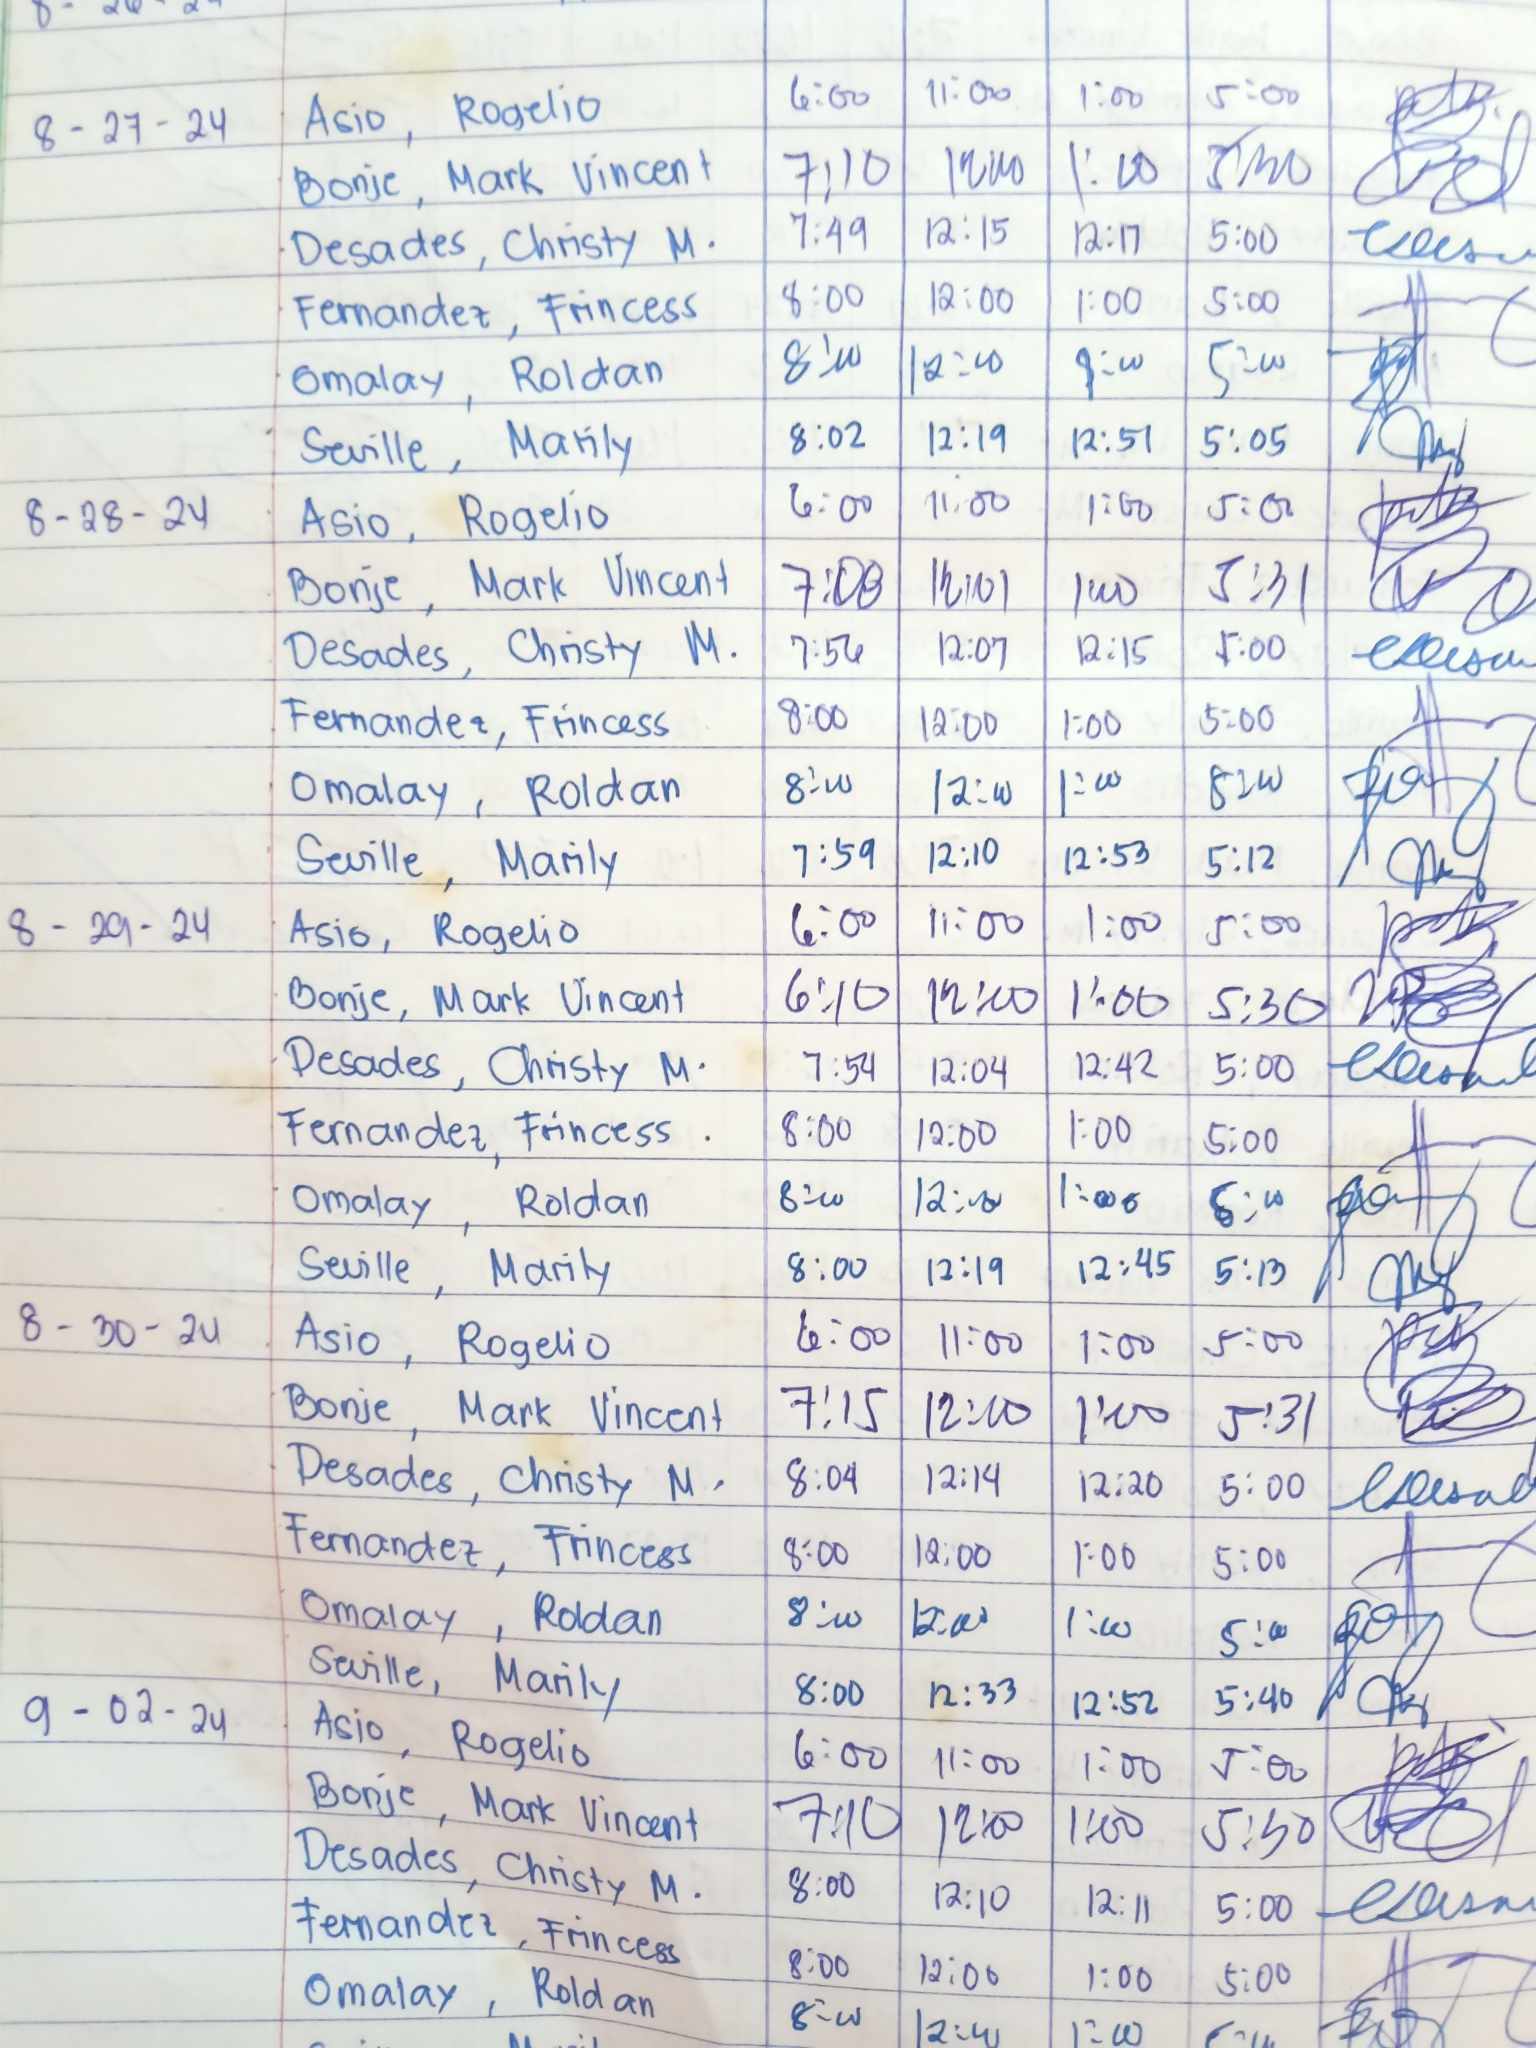 8-27-24 Asio, Rogelio 6:00 11:00 1:00 5:00
Bonje, Mark Vincent 7:10 12:00 1:00 5:30
Desades, Christy M. 7:49 12:15 12:17 5:00
Fernandez, Frincess 8:00 12:00 1:00 5:00
Omalay, Roldan 8:00 12:00 1:00 5:00
Seville, Marily 8:02 12:19 12:51 5:05
8-28-24 Asio, Rogelio 6:00 11:00 1:00 5:00
Bonje, Mark Vincent 7:08 12:01 1:00 5:31
Desades, Christy M. 7:56 12:07 12:15 5:00
Fernandez, Frincess 8:00 12:00 1:00 5:00
Omalay, Roldan 8:00 12:00 1:00
Seville, Marily 7:59 12:10 12:53 5:12
8-29-24 Asio, Rogelio 6:00 11:00 1:00 5:00
Bonje, Mark Vincent 6:10 12:00 1:00 5:30
Desades, Christy M. 7:54 12:04 12:42 5:00
Fernandez, Frincess. 8:00 12:00 1:00 5:00
Omalay, Roldan 8:00 12:00 1:00
Seville, Marily 8:00 12:19 12:45 5:13
8-30-24 Asio, Rogelio 6:00 11:00 1:00 5:00
Bonje, Mark Vincent 7:15 12:00 1:00 5:31
Desades, Christy M. 8:04 12:14 12:20 5:00
Fernandez, Frincess 8:00 12:00 1:00 5:00
Omalay, Roldan 8:00 12:00 1:00 5:00
Seville, Marily 8:00 12:33 12:52 5:40
9-02-24 Asio, Rogelio 6:00 11:00 1:00 5:00
Bonje, Mark Vincent 7:10 12:00 1:00 5:30
Desades, Christy M. 8:00 12:10 12:11 5:00
Fernandez, Frincess 8:00 12:00 1:00 5:00
Omalay, Roldan 8:00 12:00 1:00